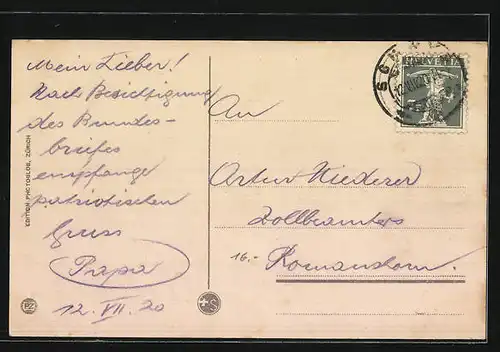 Mein Lieber!
Nach Besichtigung
des Bundes-
briefes
empfange
patriotischen
Gruss
Papa
12. VII. 20
An
Artur Niederer
Zollbeamters
16.- Romanshorn.
HELVETIA
EDITION PHOTOGLOB, ZÜRICH
PZ